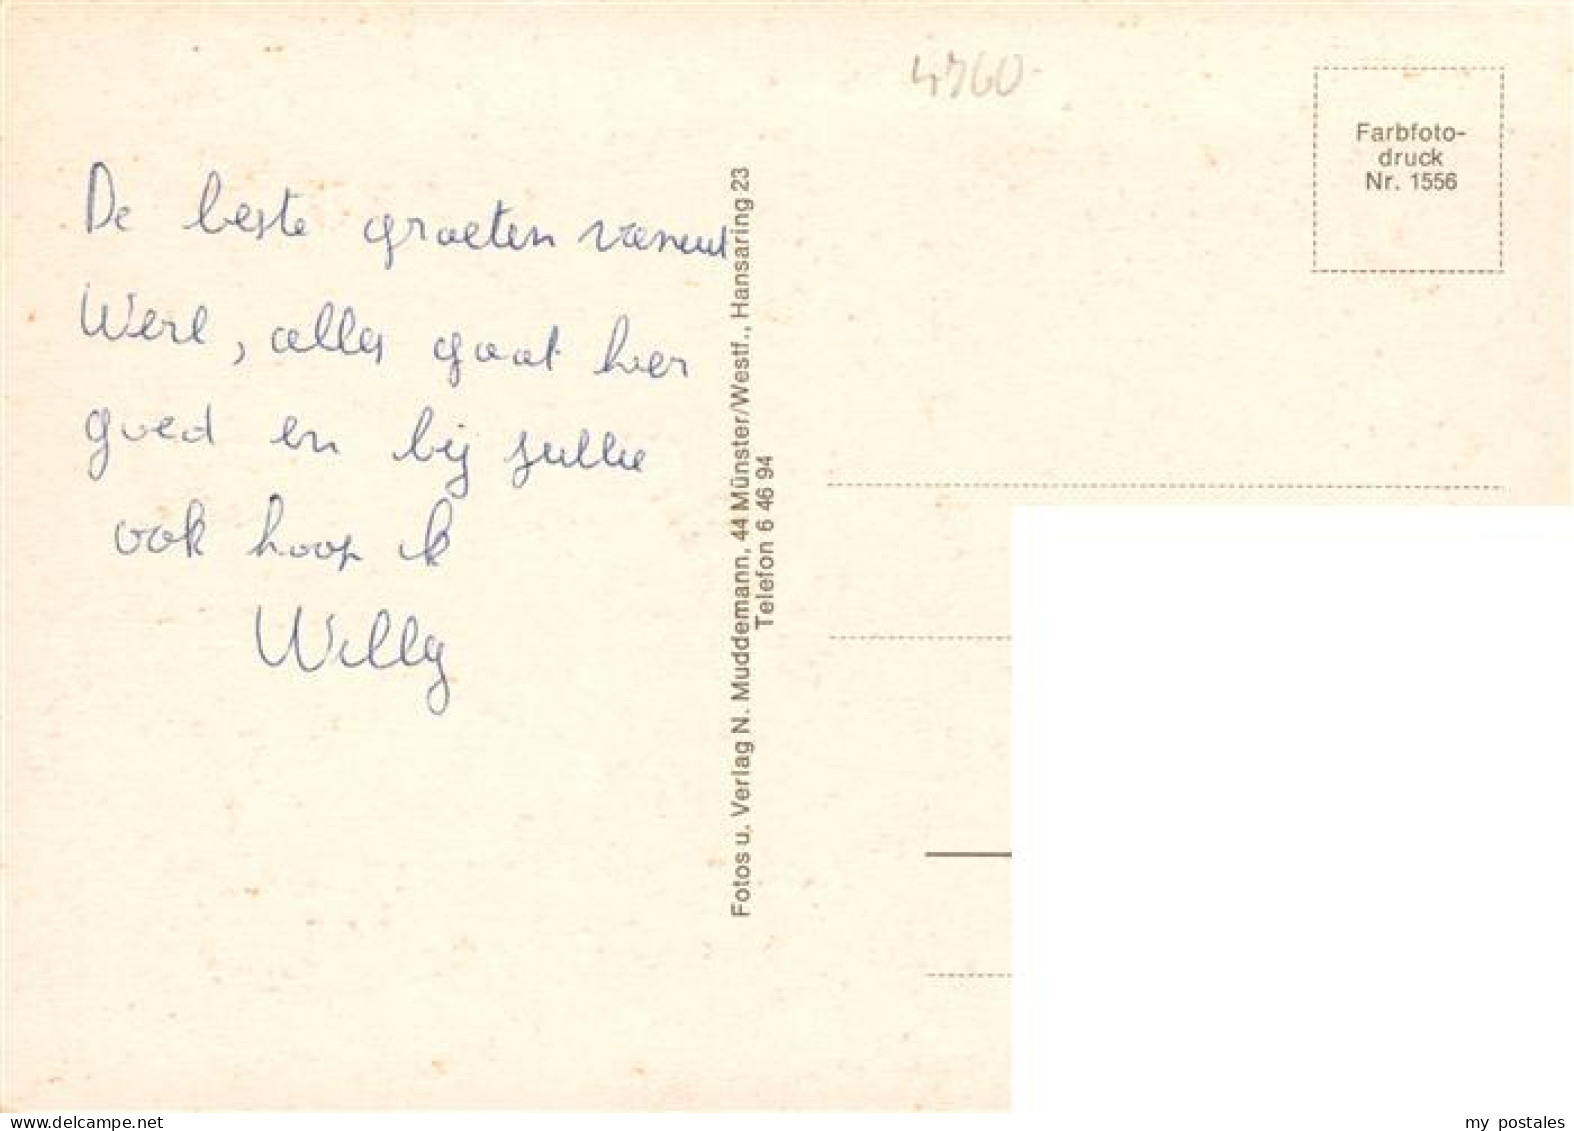 4760
Farbfoto-
druck
Nr. 1556
De beste groeten vanuit
Werl, alles gaat hier
goed en bij jullie
ook hoop ik
Willy
Fotos u. Verlag N. Muddemann, 44 Münster/Westf., Hansaring 23
Telefon 6 46 94
my postales